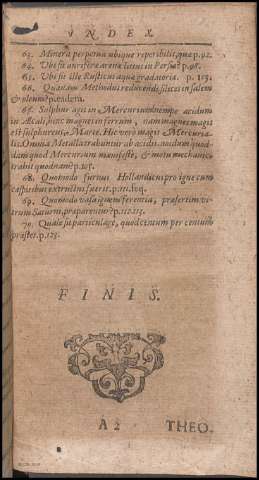 INDEX.
63. Minera perpetua ubique reperibilis, quæ p. 92.
64. Ubi sit aurifera arenæ latus in Persia? p. 98.
65. Ubi sit ille Rusticus aqua gradatoria. p. 113.
66. Quænam Methodus reducendi silices in salem
& oleum? p. eadem.
67. Sulphur agit in Mercurium nempe acidum
in Alcali, hinc magnes in ferrum, nam magnes magis
est sulphureus, Marte. Hic vero magis Mercuria-
lis. Omnia Metalla trahuntur ab acidis, acidum quod-
dam quod Mercurium manifestè, & motu mechanico
trahit quodnam? p. 105.
68. Quomodo furnus Hollandicus pro igne cum
cespitibus extructus fuerit. p. 111. seq.
69. Quomodo vasa ignem ferentia, præsertim vi-
trum Saturni, præparentur? p. 112. 113.
70. Quale sit particulare, quod centum per centum
præstet. p. 128.
FINIS.
A 2 THEO.